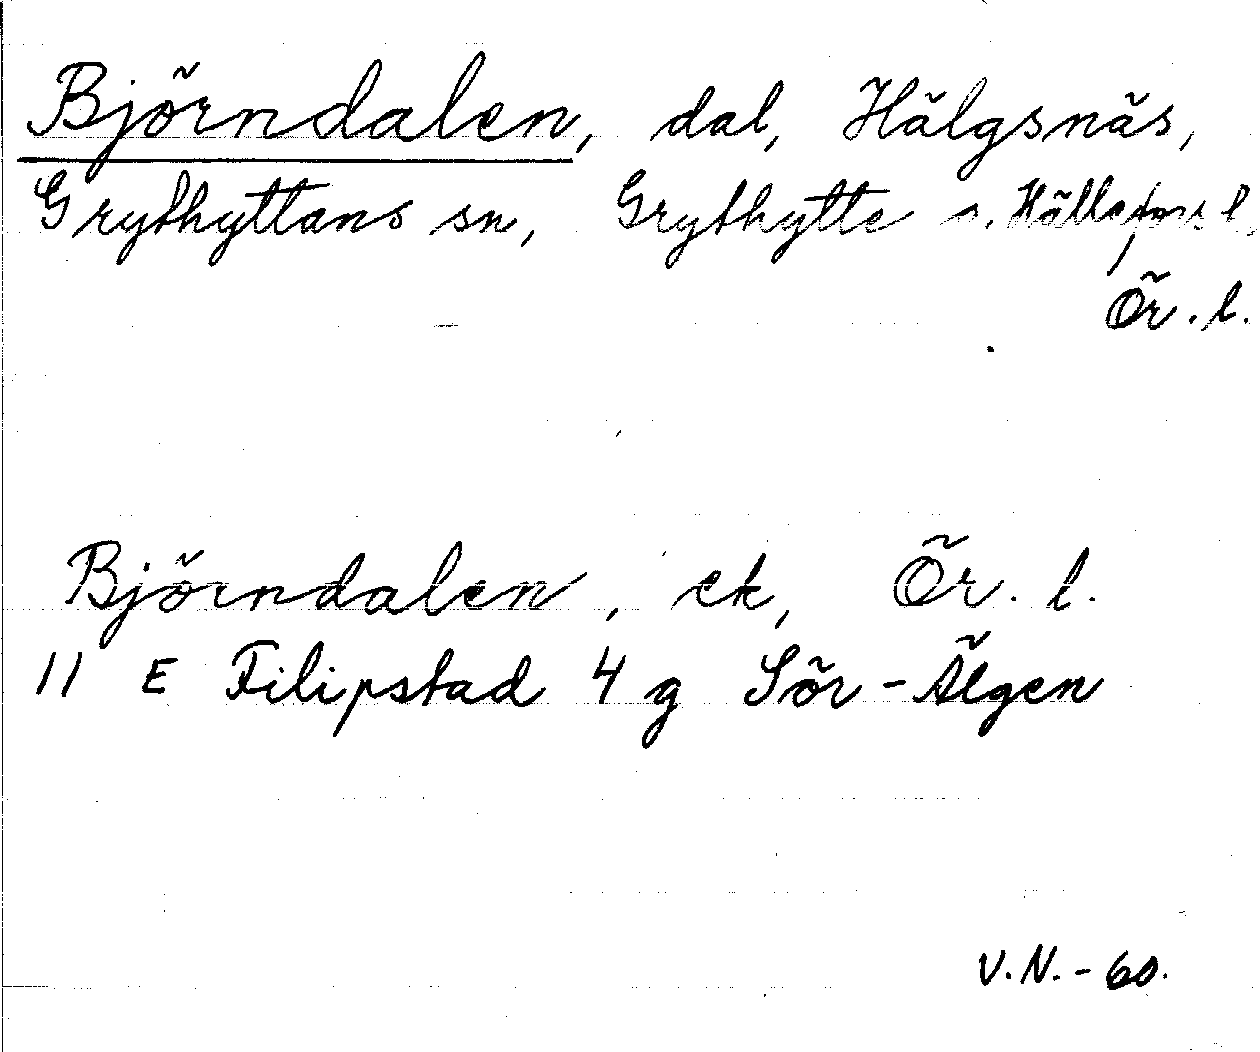 Björndalen, dal, Hälgsnäs,
Grythyttans sn, Grythytte o. Hällefors l,
Ör. l.
Björndalen, ek, Ör. l.
11 E Filipstad 4 g Sör-Älgen
V.N.-60.